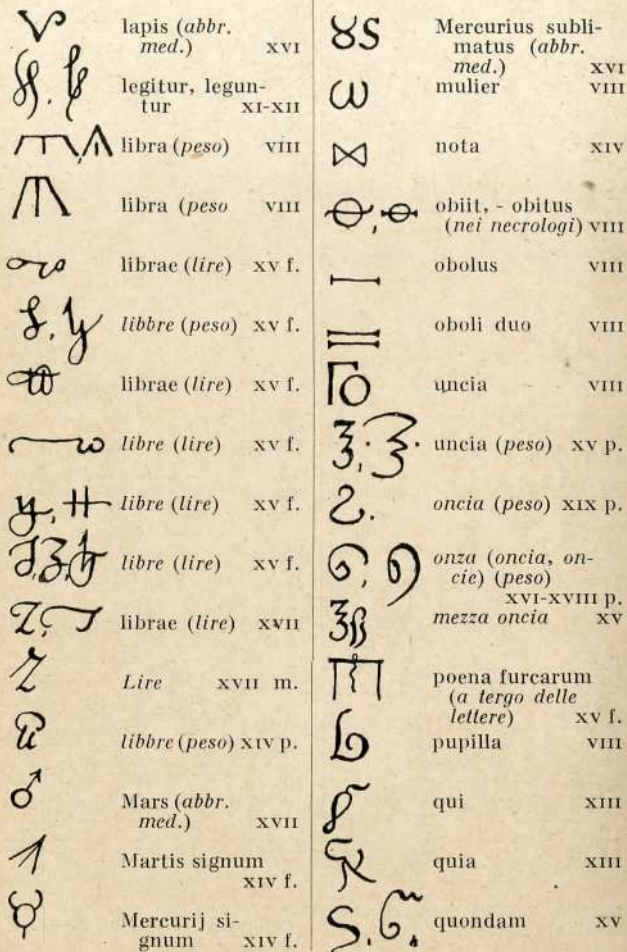 lapis (abbr.
med.) XVI
legitur, legun-
tur XI-XII
libra (peso) VIII
libra (peso VIII
librae (lire) XV f.
libbre (peso) XV f.
librae (lire) XV f.
libre (lire) XV f.
libre (lire) XV f.
libre (lire) XV f.
librae (lire) XVII
Lire XVII m.
libbre (peso) XIV p.
Mars (abbr.
med.) XVII
Martis signum
XIV f.
Mercurij si-
gnum XIV f.
Mercurius subli-
matus (abbr.
med.) XVI
mulier VIII
nota XIV
obiit, - obitus
(nei necrologi) VIII
obolus VIII
oboli duo VIII
uncia VIII
uncia (peso) XV p.
oncia (peso) XIX p.
onza (oncia, on-
cie) (peso)
XVI-XVIII p.
mezza oncia XV
poena furcarum
(a tergo delle
lettere) XV f.
pupilla VIII
qui XIII
quia XIII
quondam XV